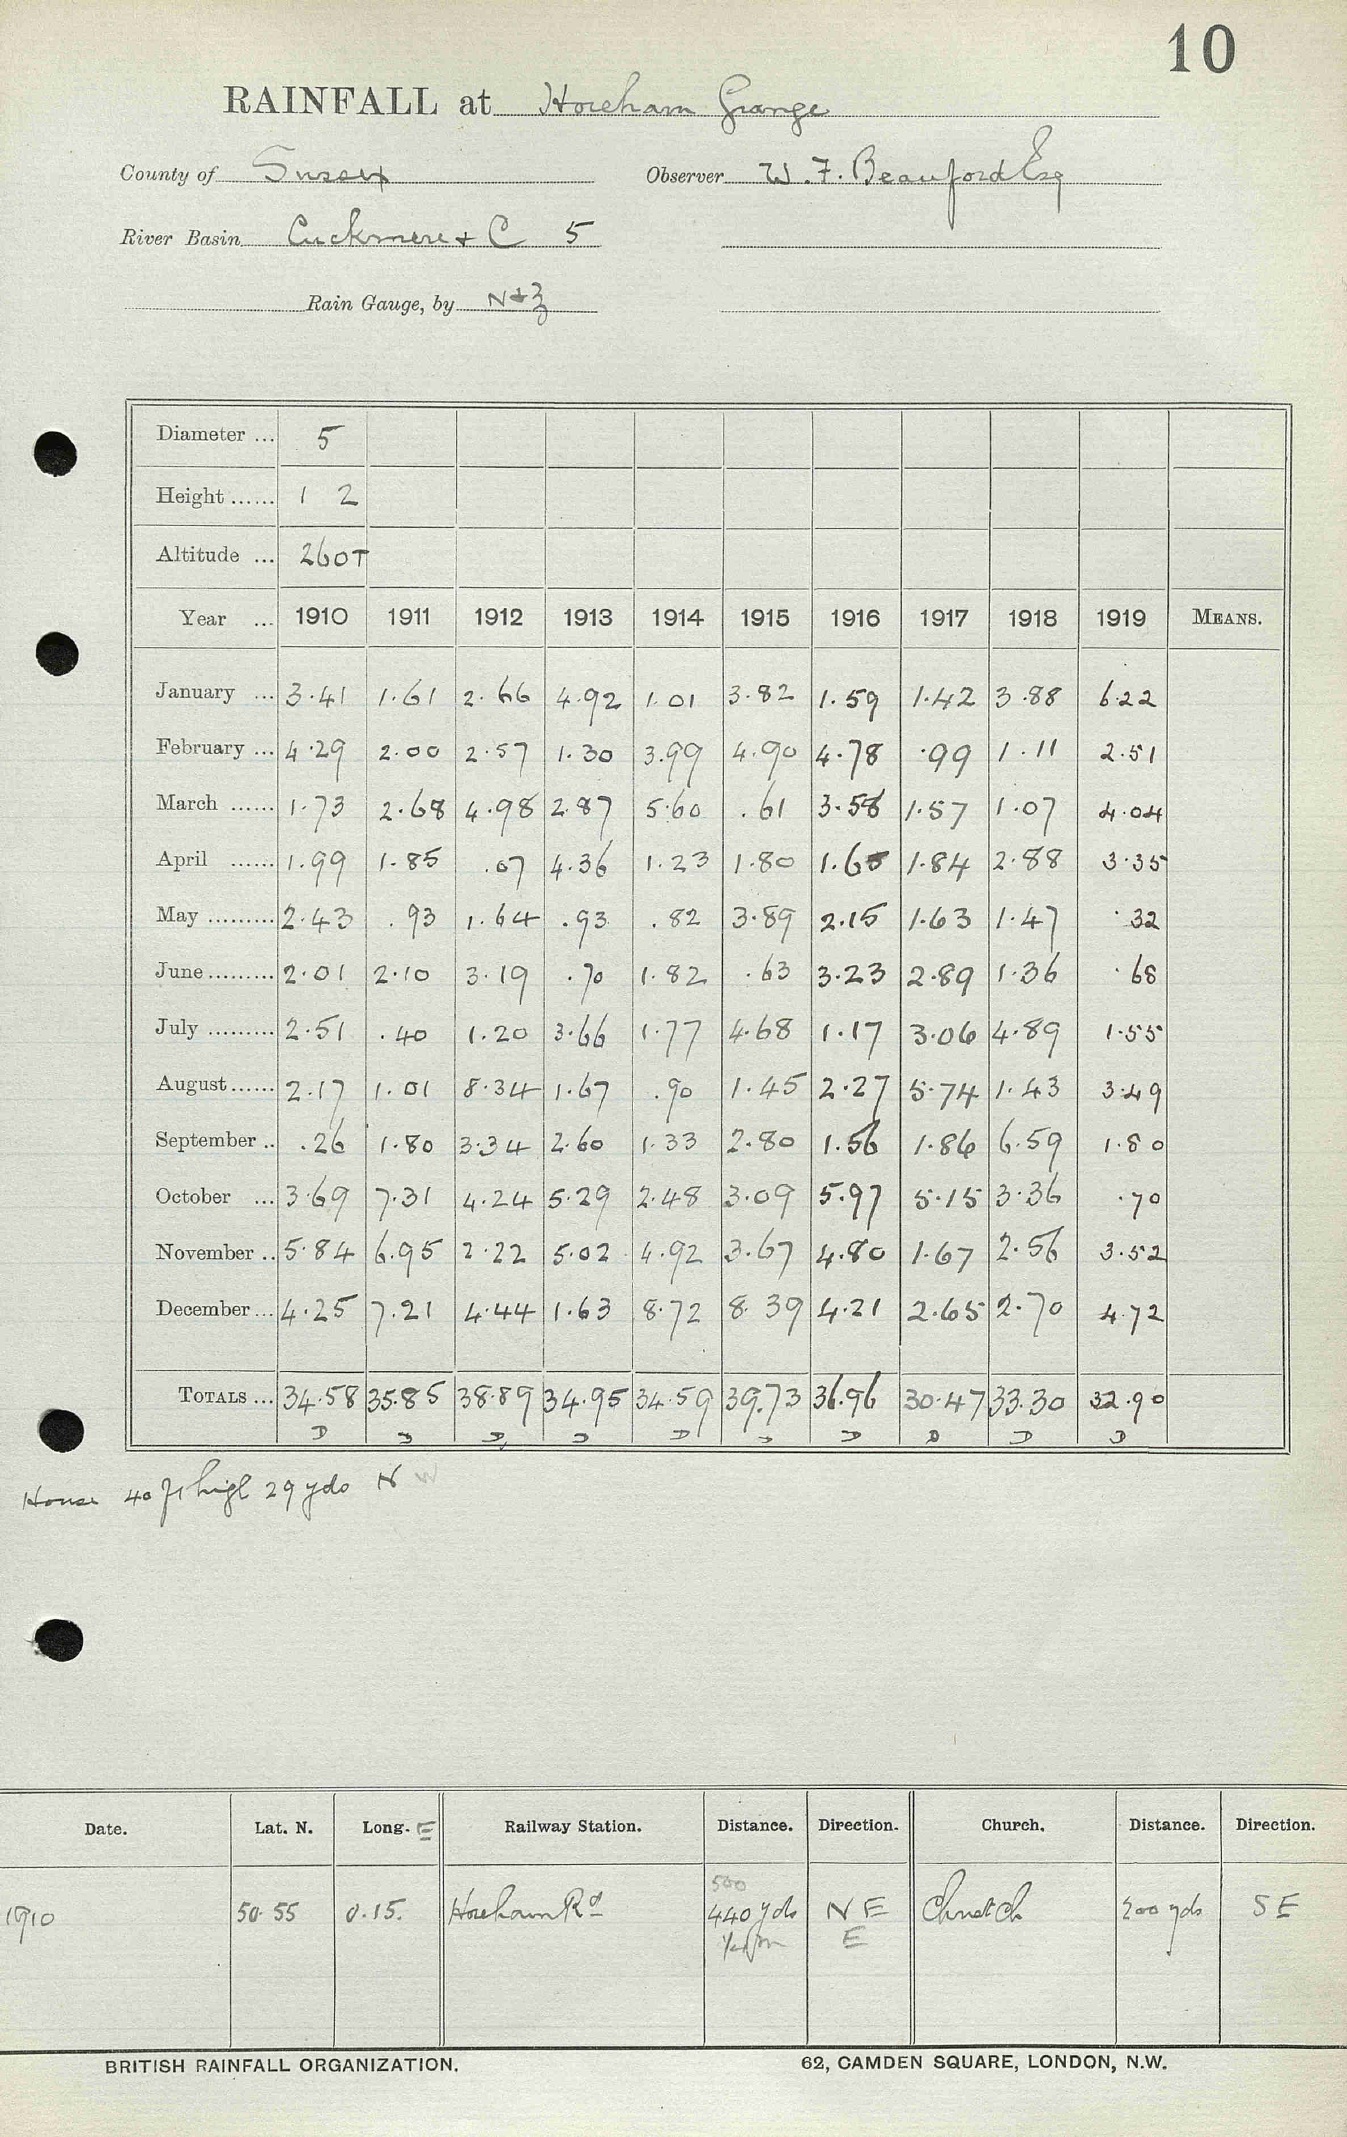 10
RAINFALL at Horeham Grange
County of Sussex Observer W. F. Beauford Esq
River Basin Cuckmere + C 5
Rain Gauge, by N+Z
Diameter ... 5
Height ...... 1 2
Altitude ... 260T
Year ... 1910 1911 1912 1913 1914 1915 1916 1917 1918 1919 MEANS.
January ... 3.41 1.61 2.66 4.92 1.01 3.82 1.59 1.42 3.88 6.22
February ... 4.29 2.00 2.57 1.30 3.99 4.90 4.78 .99 1.11 2.51
March ...... 1.73 2.68 4.98 2.87 5.60 .61 3.58 1.57 1.07 4.04
April ...... 1.99 1.85 .07 4.36 1.23 1.80 1.65 1.84 2.88 3.35
May ......... 2.43 .93 1.64 .93 .82 3.89 2.15 1.63 1.47 .32
June ......... 2.01 2.10 3.19 .70 1.82 .63 3.23 2.89 1.36 .68
July ......... 2.51 .40 1.20 3.66 1.77 4.68 1.17 3.06 4.89 1.55
August ...... 2.17 1.01 8.34 1.67 .90 1.45 2.27 5.74 1.43 3.49
September .. .26 1.80 3.34 2.60 1.33 2.80 1.56 1.86 6.59 1.80
October ... 3.69 7.31 4.24 5.29 2.48 3.09 5.97 5.15 3.36 .70
November .. 5.84 6.95 2.22 5.02 4.92 3.67 4.80 1.67 2.56 3.52
December ... 4.25 7.21 4.44 1.63 8.72 8.39 4.21 2.65 2.70 4.72
TOTALS ... 34.58 35.85 38.89 34.95 34.59 39.73 36.96 30.47 33.30 32.90
D D D D D D D D D D
House 40 ft high 29 yds N W
Date. Lat. N. Long. E Railway Station. Distance. Direction. Church. Distance. Direction.
500
1910 50.55 0.15. Horeham Rd 440 yds N E Christ Ch 200 yds S E
E
BRITISH RAINFALL ORGANIZATION. 62, CAMDEN SQUARE, LONDON, N.W.